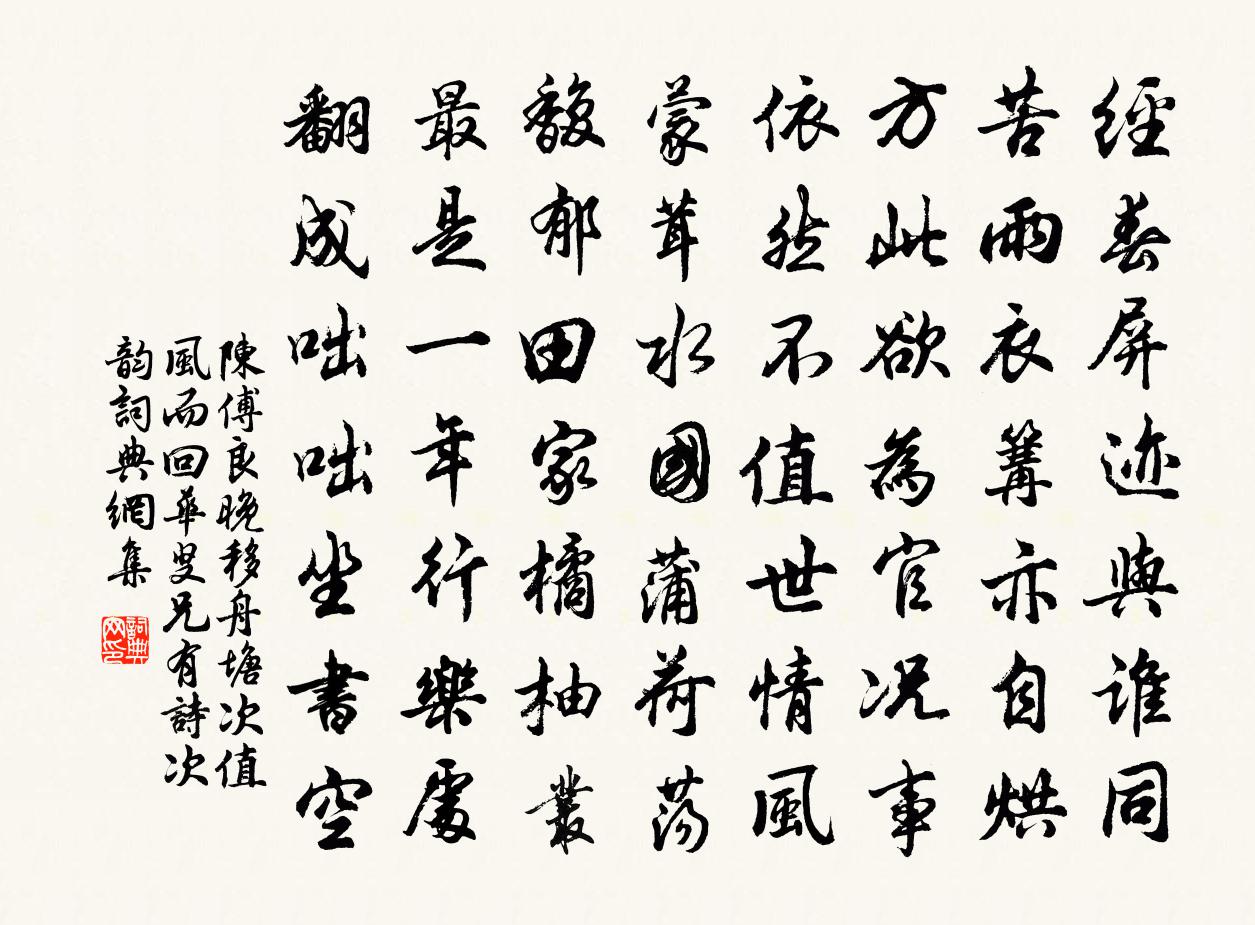 經春屏迹與誰同
苦雨衣篝亦自烘
方此欲為官況事
依然不值世情風
蒙茸水國蒲荷蕩
馥郁田家橘柚叢
最是一年行樂處
翻成咄咄坐書空
陳傅良晚移舟塘次值
風而回華叟兄有詩次
韵詞典網集
詞典网印